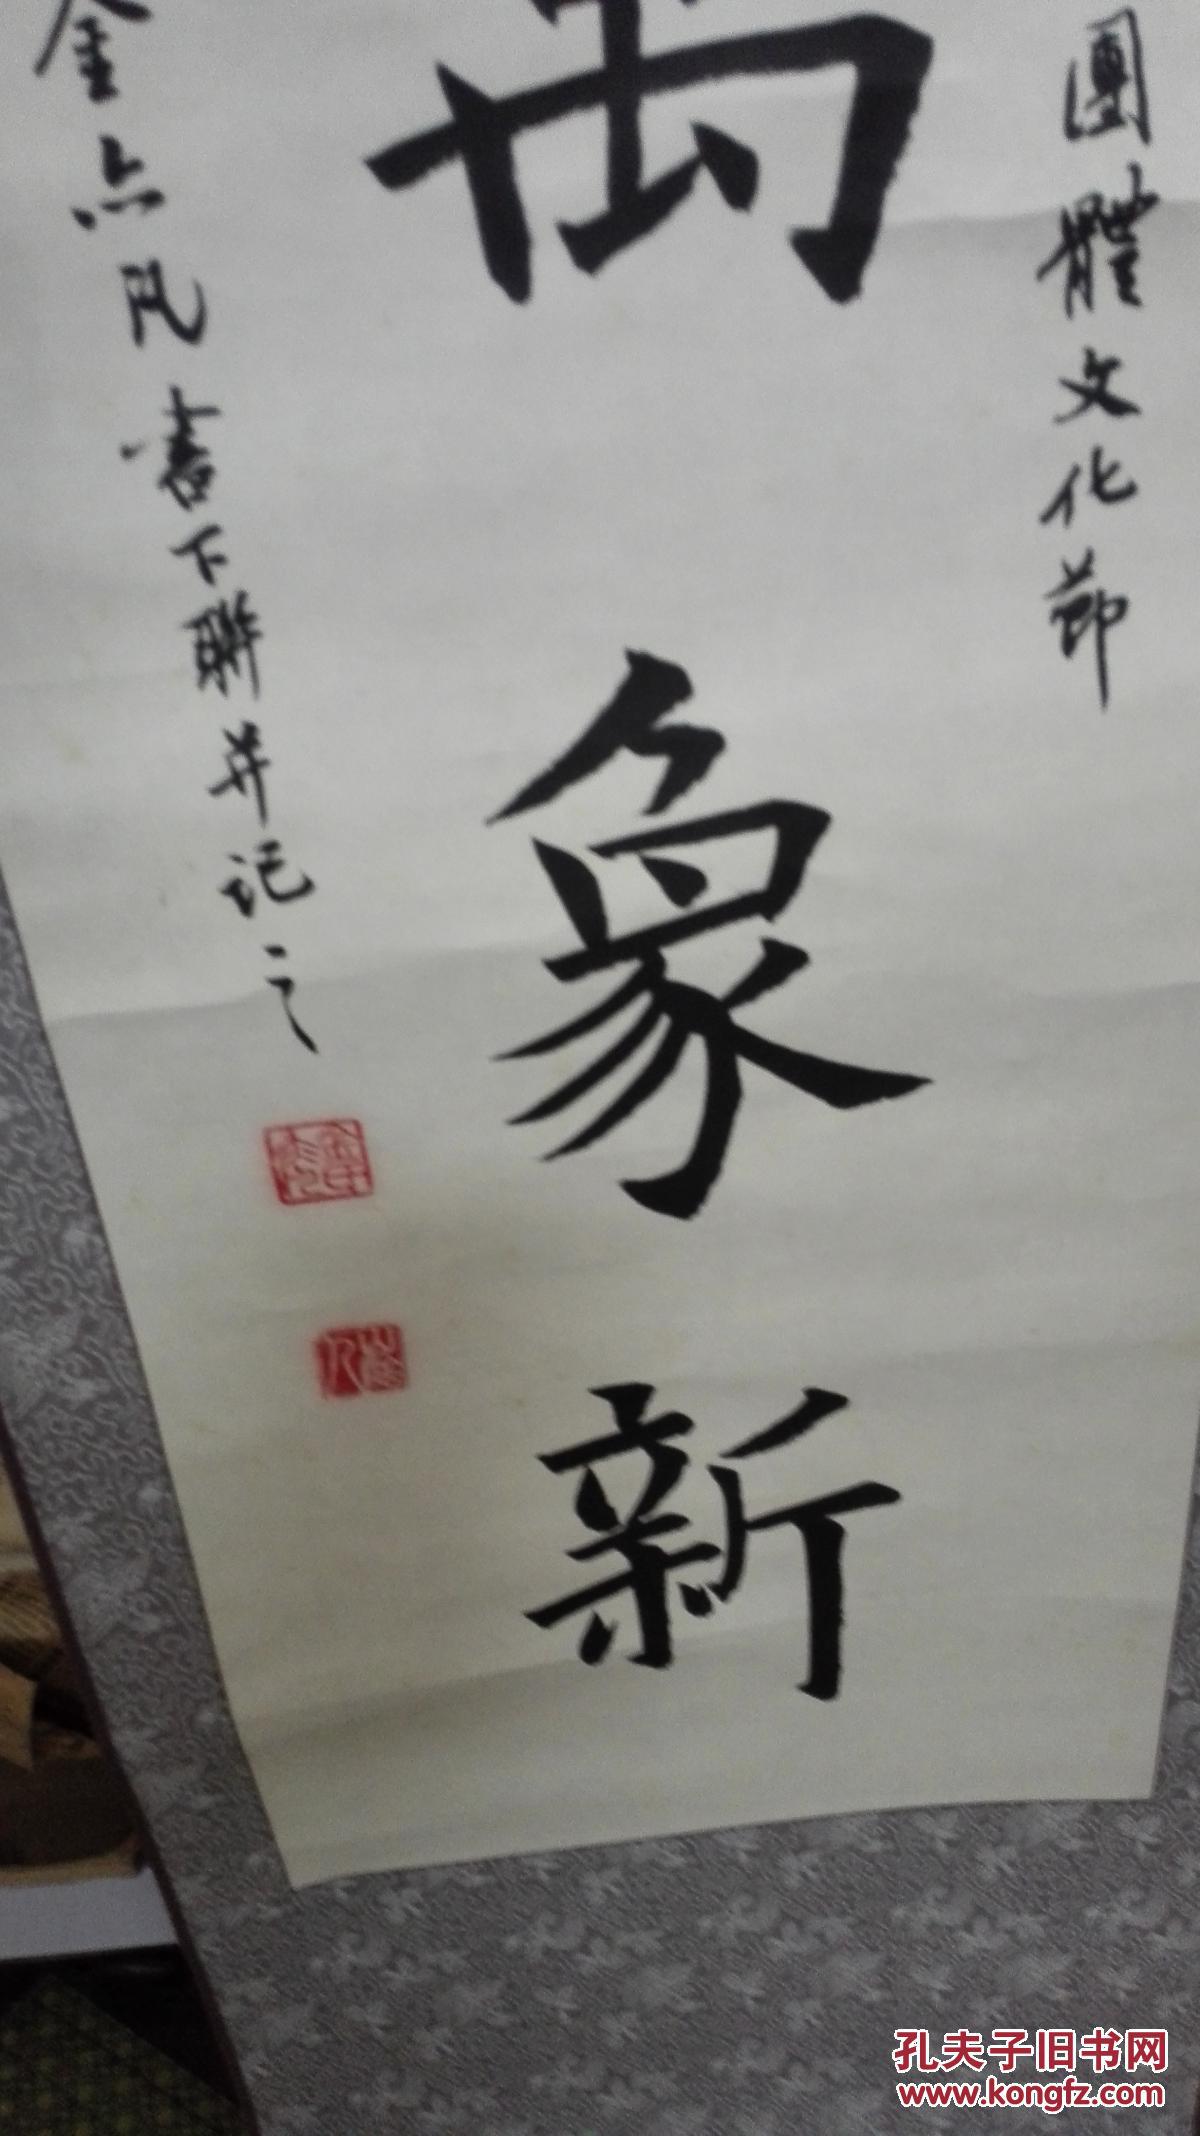 團體文化節
萬象新
金亦凡書下聯并记之
孔夫子旧书网
www.kongfz.com